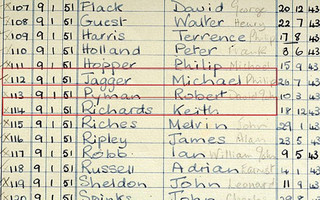 X107 9 1 51 Flack David George 20 12 43
108 9 1 51 Guest Walter Henry 22 7 43
109 9 1 51 Harris Terrence Philip 17 8 43
110 9 1 51 Holland Peter Frank 3 6 43
111 9 1 51 Hopper Philip Michael 15 9 43
X112 9 1 51 Jagger Michael Philip 26 7 43
X113 9 1 51 Pyman Robert 10 3 43
X114 9 1 51 Richards Keith 18 12 43
X115 9 1 51 Riches Melvin John 29 1 43
X116 9 1 51 Ripley James Alan 23 6 43
X117 9 1 51 Robb Ian William John 9 5 43
118 9 1 51 Russell Adrian Earnet 14 1 43
X119 9 1 51 Sheldon John Leonard 11 9 43
X120 9 1 51 Spinks John Charles 43